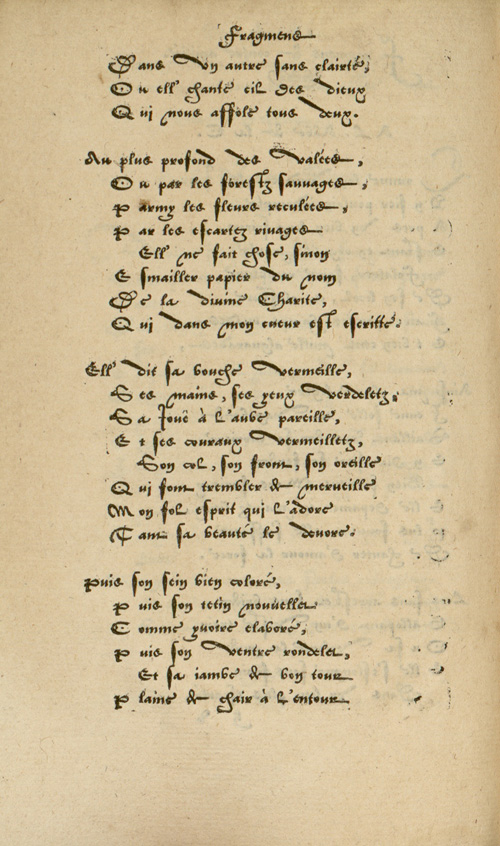 Fragmens
Dans un antre sans clairté,
Ou ell' chante cil des dieux
Qui nous affole tous deux.
Au plus profond des valées,
Ou par les forestz sauvages,
Parmy les fleurs reculées,
Par les escartez rivages
Ell' ne fait chose, sinon
Esmailler papier du nom
De la divine Charite,
Qui dans mon cueur est escritte.
Ell' dit sa bouche vermeille,
Ses mains, ses yeux verdeletz,
Sa Jouë à l'aube pareille,
Et ses couraux vermeilletz,
Son col, son front, son oreille
Qui font trembler & merveille
Mon fol esprit qui l'adore
Tant sa beauté le devore.
Puis son sein bien coloré,
Puis son tetin nouvellet
Comme yvoire elaboré,
Puis son ventre rondelet,
Et sa iambe & bon tour
Plaine & chair à l'entour